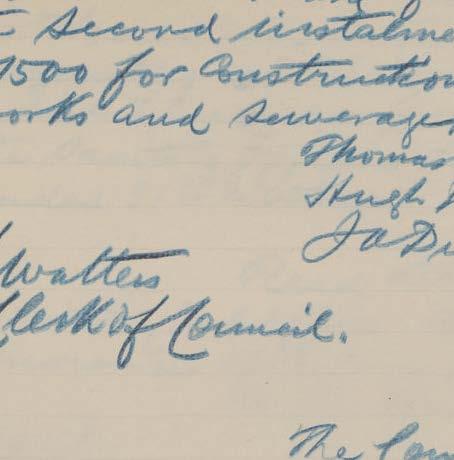 second instalme
1500 for Construction
orks and Sewerage
Thomas
Hugh
J A Du
Watters
Clerk of Council.
The Com